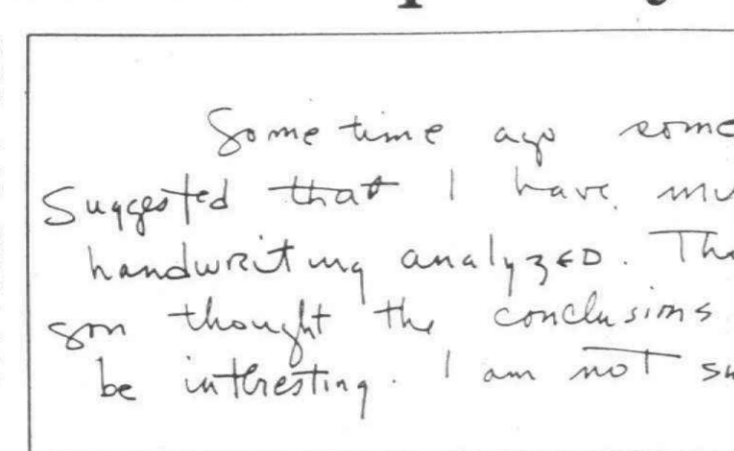 Some time ago some
Suggested that I have my
handwriting analyzED. Tha
son thought the conclusions
be interesting. I am not su